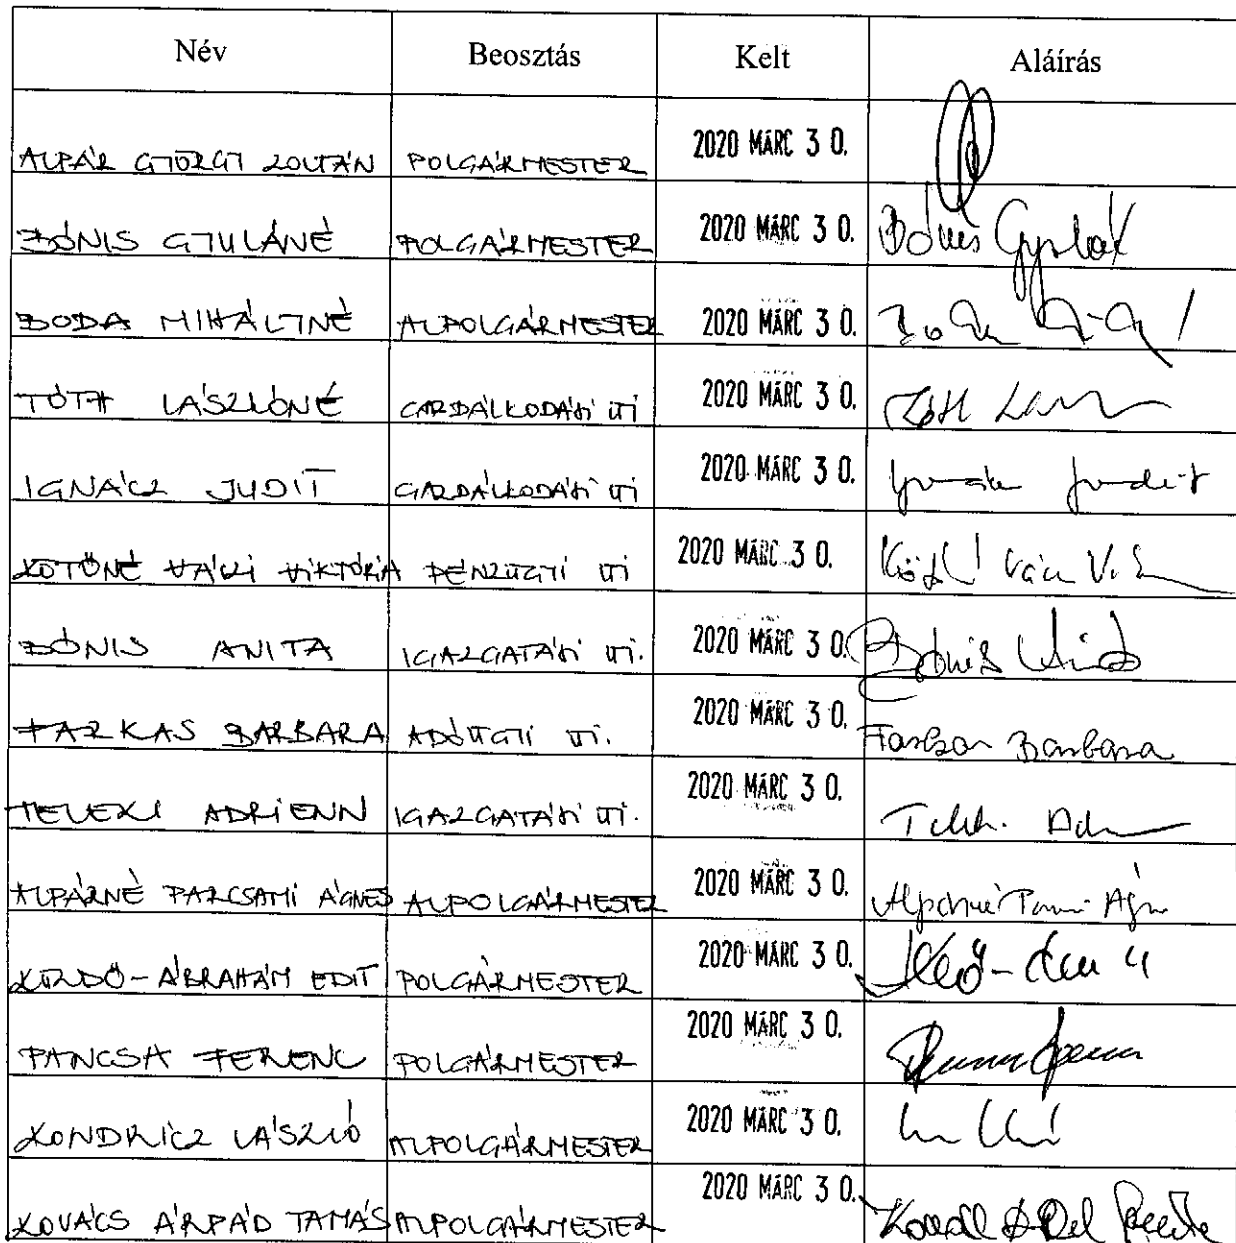 Név Beosztás Kelt Aláírás
ALPÁR GYÖRGY ZOLTÁN POLGÁRMESTER 2020 MÁRC 30.
BÓNIS GYULÁNÉ POLGÁRMESTER 2020 MÁRC 30. Bónis Gyuláné
BODA MIHÁLYNÉ ALPOLGÁRMESTER 2020 MÁRC 30.
TÓTH LÁSZLÓNÉ GAZDÁLKODÁSI ÜI 2020 MÁRC 30. Tóth
IGNÁCZ JUDIT GAZDÁLKODÁSI ÜI 2020 MÁRC 30. Ignácz Judit
VIKTÓRIA PÉNZÜGYI ÜI 2020 MÁRC 30.
BÓNIS ANITA IGAZGATÁSI ÜI. 2020 MÁRC 30. Bónis Anita
FARKAS BARBARA ADÓÜGYI ÜI. 2020 MÁRC 30. Farkas Barbara
TELEKI ADRIENN IGAZGATÁSI ÜI. 2020 MÁRC 30.
ALPÁRNÉ ÁGNES ALPOLGÁRMESTER 2020 MÁRC 30. Alpárné
EDIT POLGÁRMESTER 2020 MÁRC 30.
PANCSA FERENC POLGÁRMESTER 2020 MÁRC 30.
KONDRICZ LÁSZLÓ ALPOLGÁRMESTER 2020 MÁRC 30.
KOVÁCS ÁRPÁD TAMÁS ALPOLGÁRMESTER 2020 MÁRC 30.